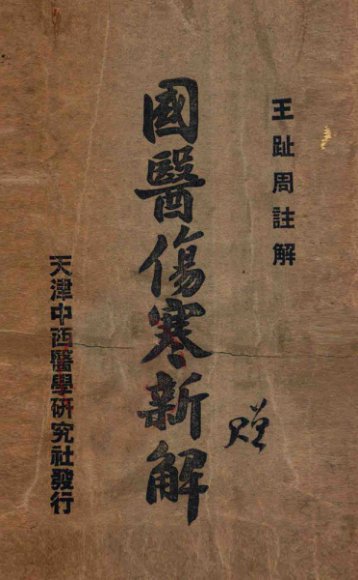 王趾周註解
國醫傷寒新解
赠
天津中西醫學研究社發行